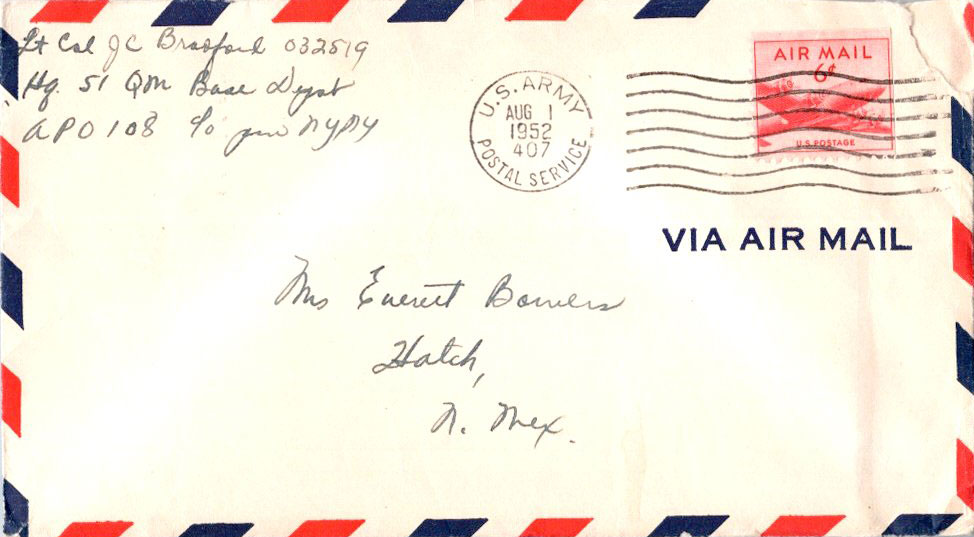 Lt Col J C Bradford 032519
Hq. 51 QM Base Depot
APO 108 c/o pm NY NY
U.S. ARMY
AUG 1
1952
407
POSTAL SERVICE
AIR MAIL
6¢
U.S. POSTAGE
VIA AIR MAIL
Mrs Everett Bowers
Hatch,
N. Mex.